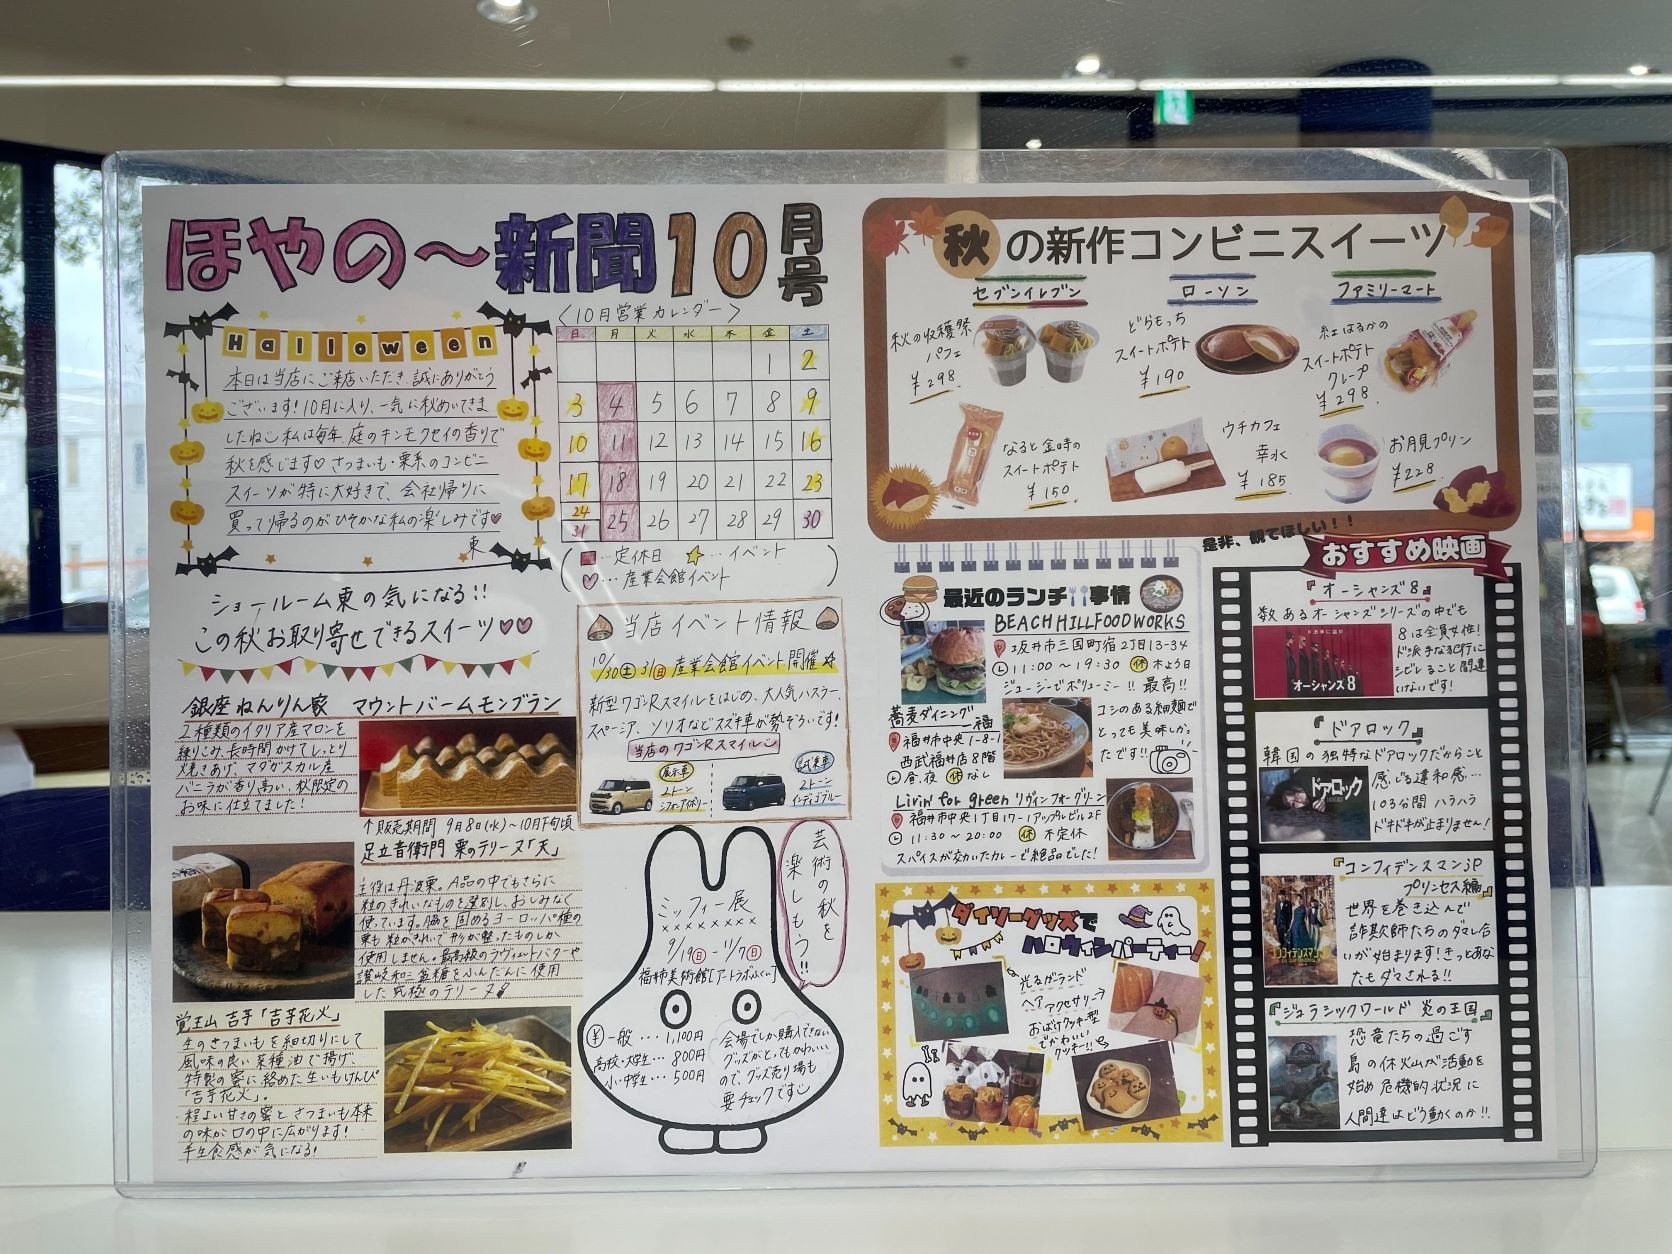 ほやの〜新聞10月号
Halloween
本日は当店にご来店いただき、誠にありがとう
ございます!10月に入り、一気に秋めいてきま
したね 私は毎年、庭のキンモクセイの香りで
秋を感じます♡ さつまいも・栗系のコンビニ
スイーツが特に大好きで、会社帰りに
買って帰るのがひそかな私の楽しみです♥
東
〈10月営業カレンダー〉
日 月 火 水 木 金 土
1 2
3 4 5 6 7 8 9
10 11 12 13 14 15 16
17 18 19 20 21 22 23
24 25 26 27 28 29 30
31
(■…定休日 ☆…イベント
♡…産業会館イベント)
ショールーム東の気になる!!
この秋お取り寄せできるスイーツ♥♥
銀座ねんりん家 マウントバームモンブラン
2種類のイタリア産マロンを
練りこみ、長時間かけてしっとり
焼きあげ、マダガスカル産
バニラが香り高い、秋限定の
お味に仕立てました!
↑販売期間 9月8日(水)〜10月下旬頃
足立音衛門 栗のテリーヌ「天」
主役は丹波栗。A品の中でもさらに
粒のきれいなものを選別し、おしみなく
使っています。脇を固めるヨーロッパ種の
栗も粒がきれいで形が整ったものしか
使用しません。最高級のラヴィエットバターや
讃岐和三盆糖をふんだんに使用
した究極のテリーヌ
覚王山 吉芋「吉芋花火」
生のさつまいもを細切りにして
風味の良い菜種油で揚げ、
特製の蜜に絡めた生いもけんぴ
「吉芋花火」。
程よい甘さの蜜とさつまいも本来
の味が口の中に広がります!
半生食感が気になる!
当店イベント情報
10/30土 31日 産業会館イベント開催☆
新型ワゴンRスマイルをはじめ、大人気ハスラー、
スペーシア、ソリオなどスズキ車が勢ぞろいです!
当店のワゴンRスマイル
展示車
2トーン
シフォンアイボリー
試乗車
2トーン
インディゴブルー
芸術の秋を
楽しもう!!
ミッフィー展
××××××××
9/19日〜11/7日
福井市美術館[アートラボふくい]
¥一般…1,100円
高校・大学生…800円
小・中学生…500円
会場でしか購入できない
グッズがとってもかわいい
ので、グッズ売り場も
要チェックです
秋の新作コンビニスイーツ
セブンイレブン
秋の収穫祭
パフェ
¥298
なると金時の
スイートポテト
¥150
ローソン
どらもっち
スイートポテト
¥190
ウチカフェ
幸水
¥185
ファミリーマート
紅はるかの
スイートポテト
クレープ
¥298
お月見プリン
¥228
最近のランチ事情
BEACH HILL FOOD WORKS
坂井市三国町宿2丁目13-34
11:00〜19:30 休 木よう日
ジューシーでボリューミー!!最高!!
蕎麦ダイニング
一福
福井市中央1-8-1
西武福井店8階
昼、夜 休なし
コシのある細麺で
とっても美味しかっ
たです!!
Livin' for green リヴィンフォーグリーン
福井市中央1丁目17-1アップルビル2F
11:30〜20:00 休 不定休
スパイスが効いたカレーで絶品でした!
ダイソーグッズで
ハロウィンパーティー!
光るガーランド
ヘアアクセサリー→
おばけクッキー型
でかわいい
クッキー!!
是非、観てほしい!!
おすすめ映画
『オーシャンズ8』
数あるオーシャンズシリーズの中でも
8は全員女性!
ド派手な犯行に
シビレること間違
いないです!
オーシャンズ8
『ドアロック』
韓国の独特なドアロックだからこと
感じる違和感…
103分間ハラハラ
ドキドキが止まりません!
ドアロック
『コンフィデンスマンJP
プリンセス編』
世界を巻き込んで
詐欺師たちのダマし合
いが始まります!きっとあな
たもダマされる!!
『ジュラシックワールド 炎の王国』
恐竜たちの過ごす
島の休火山が活動を
始め危機的状況に
人間達はどう動くのか!!